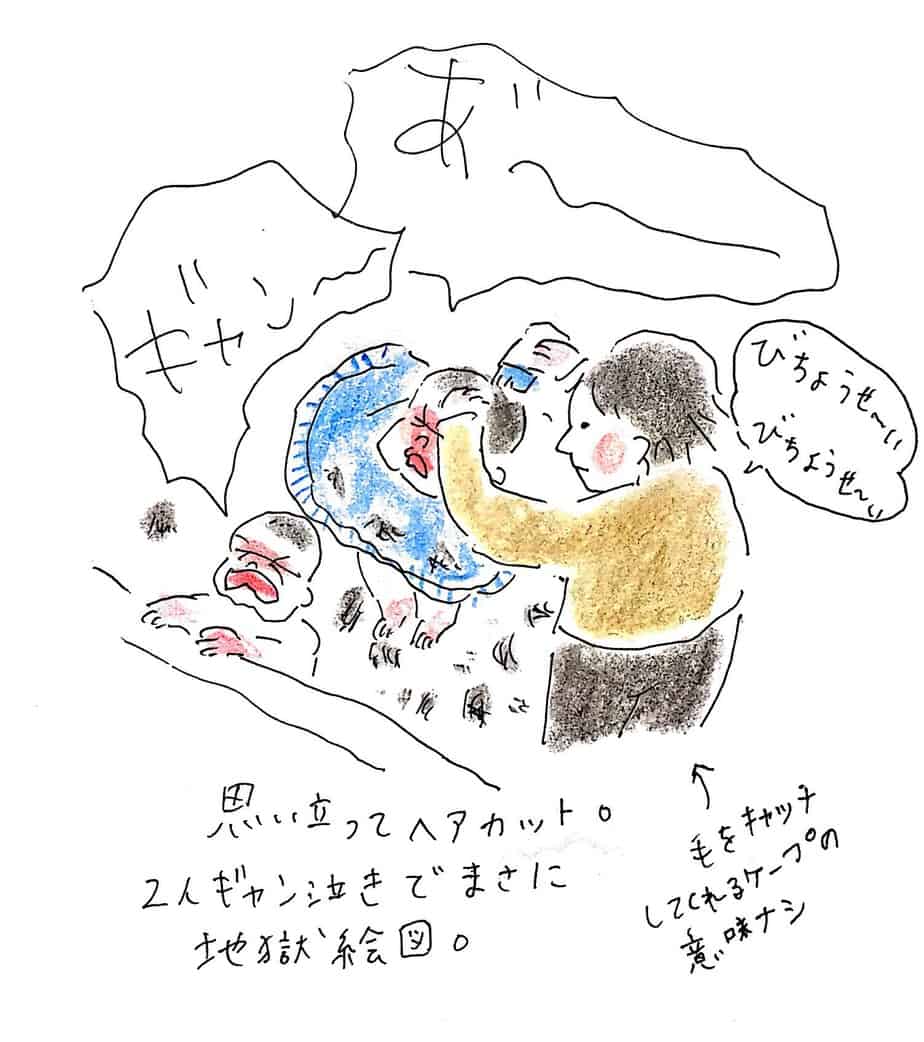 あ゛〜
ギャン〜
びちょうせ〜い
びちょうせ〜い
思い立ってヘアカット。
2人ギャン泣きでまさに
地獄絵図。
毛をキャッチ
してくれるケープの
意味ナシ